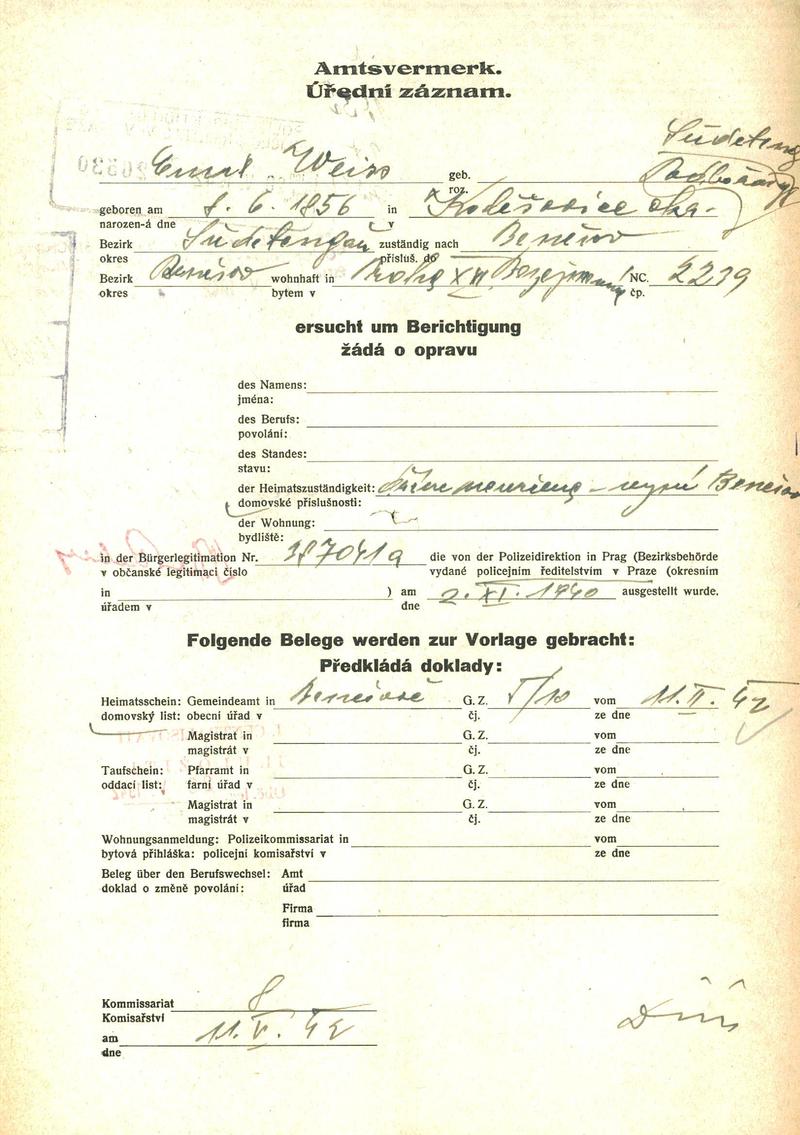 Amtsvermerk.
Úřední záznam.
Sudetengau
Emil Weiss geb.
roz.
geboren am 8. 6. 1856 in Kolešovice
narozen-á dne v
Bezirk Sudetengau zuständig nach Benešov
okres přísluš. do
Bezirk Benešov wohnhaft in Praha XII NC. 2239
okres bytem v čp.
ersucht um Berichtigung
žádá o opravu
des Namens:
jména:
des Berufs:
povolání:
des Standes:
stavu:
der Heimatszuständigkeit: nyní Benešov
domovské příslušnosti:
der Wohnung:
bydliště:
in der Bürgerlegitimation Nr. die von der Polizeidirektion in Prag (Bezirksbehörde
v občanské legitimaci číslo vydané policejním ředitelstvím v Praze (okresním
in ) am 2. XI. 1940 ausgestellt wurde.
úřadem v dne
Folgende Belege werden zur Vorlage gebracht:
Předkládá doklady:
Heimatsschein: Gemeindeamt in Benešově G. Z. V/10 vom 11. II. 42
domovský list: obecní úřad v čj. ze dne
Magistrat in G. Z. vom
magistrát v čj. ze dne
Taufschein: Pfarramt in G. Z. vom
oddací list: farní úřad v čj. ze dne
Magistrat in G. Z. vom
magistrát v čj. ze dne
Wohnungsanmeldung: Polizeikommissariat in vom
bytová přihláška: policejní komisařství v ze dne
Beleg über den Berufswechsel: Amt
doklad o změně povolání: úřad
Firma
firma
Kommissariat 8
Komisařství
am 11. V. 42
dne